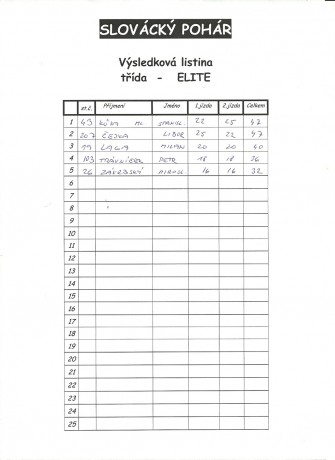 SLOVÁCKÝ POHÁR
Výsledková listina
třída - ELITE
st.č. Příjmení Jméno 1.jízda 2.jízda Celkem
1 49 ML. 22 25 47
2 207 ČEJKA LIBOR 25 22 47
3 19 MILAN 20 20 40
4 103 TRÁVNÍČEK PETR 18 18 36
5 26 ZÁVRBSKÝ 16 16 32
6
7
8
9
10
11
12
13
14
15
16
17
18
19
20
21
22
23
24
25